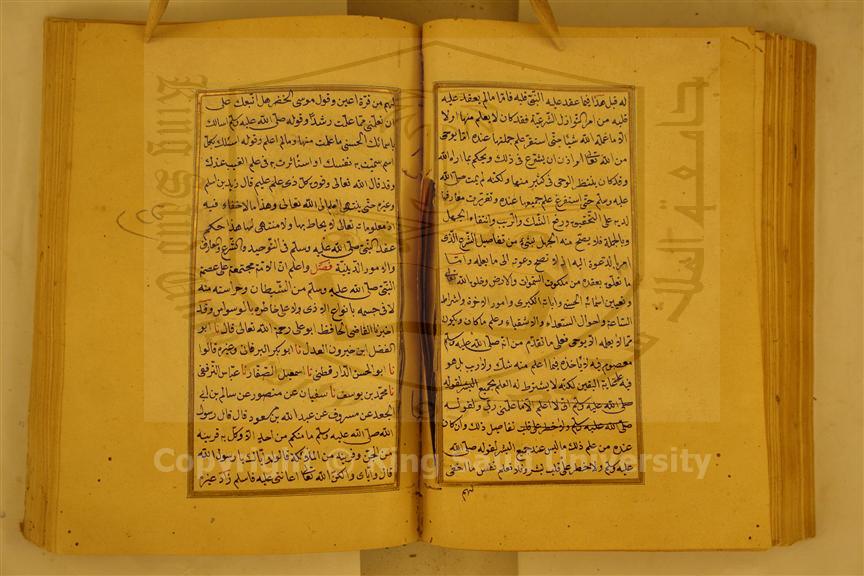 له قبل هذا فيما عقد عليه النبي قلبه فاما ما لم يعقد عليه
قلبه من امر النوازل الشرعية فقد كان لا يعلم منها اولا
الا ما علمه الله شيئا حتى استقر علم جملتها عنده اما بوحي
من الله او اذن ان يشرع في ذلك ويحكم بما اراه الله
وقد كان ينتظر الوحي في كثير منها ولكنه لم يمت صلى الله
عليه وسلم حتى استفرغ علم جميعها عنده وتقررت معارفها
لديه على التحقيق ورفع الشك والريب وانتفاء الجهل
وبالجملة فلا يصح منه الجهل بشيء من تفاصيل الشرع الذي
امر بالدعوة اليه اذ لا تصح دعوته الى ما لا يعلمه واما
ما تعلق بعقده من ملكوت السموات والارض وخلق الله
وتعيين اسمائه الحسنى واياته الكبرى وامور الاخرة واشراط
الساعة واحوال السعداء والاشقياء وعلم ما كان ويكون
مما لا يعلمه الا بوحي فعلى ما تقدم من انه صلى الله عليه وسلم
معصوم فيه لا ياخذه فيما اعلم منه شك ولا ريب بل هو
فيه على غاية اليقين لكنه لا يشترط له العلم بجميع لقوله
صلى الله عليه وسلم اني لا اعلم الا ما علمني ربي ولقوله
صلى الله عليه وسلم ولا خطر على قلب تفاصيل ذلك وان كان
عنده من علم ذلك ما ليس عند جميع البشر لقوله صلى الله
عليه وسلم ولا خطر على قلب بشر فلا تعلم نفس ما اخفي
لهم
لهم من قرة اعين وقول موسى للخضر هل اتبعك على
ان تعلمني مما علمت رشدا وقوله صلى الله عليه وسلم اسالك
باسمائك الحسنى ما علمت منها وما لم اعلم وقوله اسئلك بكل
اسم سميت به نفسك او استأثرت به في علم الغيب عندك
وقد قال الله تعالى وفوق كل ذي علم عليم قال زيد بن اسلم
وغيره حتى ينتهي العلم الى الله تعالى وهذا ما لا خفاء فيه
اذ معلوماته تعالى لا يحاط بها ولا منتهى لها هذا حكم
عقد النبي صلى الله عليه وسلم في التوحيد والشرع والمعارف
والامور الدينية فصل واعلم ان الامة مجتمعة على عصمة
النبي صلى الله عليه وسلم من الشيطان وحراسته منه
لا في جسمه بانواع الاذى ولا على خاطره بالوسواس وقد
اخبرنا القاضي الحافظ ابو علي رحمه الله تعالى قال نا ابو
الفضل ابن خيرون العدل نا ابو بكر البرقاني وغيره قالوا
نا ابو الحسن الدارقطني نا اسمعيل الصفار نا عباس الترقفي
نا محمد بن يوسف نا سفيان عن منصور عن سالم بن ابي
الجعد عن مسروق عن عبد الله بن سعود قال قال رسول
الله صلى الله عليه وسلم ما منكم من احد الا وكل به قرينه
من الجن وقرينه من الملائكة قالوا واياك يا رسول الله
قال واياي ولكن الله تعالى اعانني عليه فاسلم زاد غيره
Copyright © King Saud University
جامعة الملك سعود
King Saud University